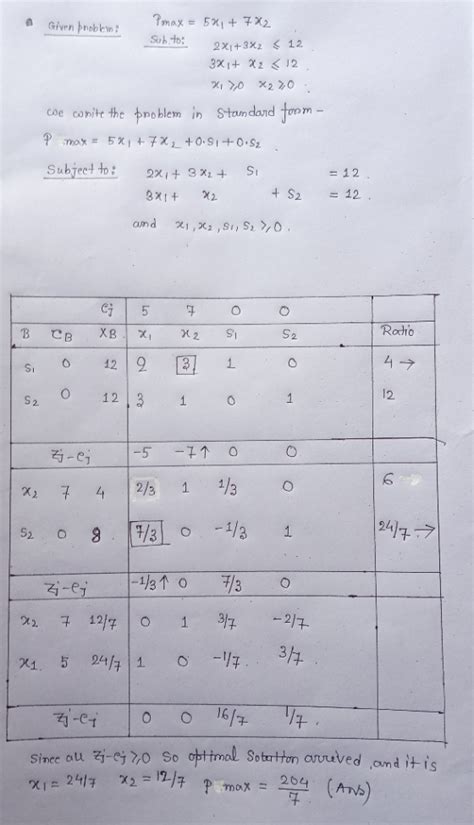 Given problem: Pmax = 5x1 + 7x2
Sub. to: 2x1+3x2 ≤ 12
3x1+ x2 ≤ 12
x1 ≥ 0 x2 ≥ 0
we write the problem in Standard form -
P max = 5x1 + 7x2 + 0·S1 + 0·S2
Subject to: 2x1 + 3x2 + S1 = 12
3x1+ x2 + S2 = 12
and x1, x2, S1, S2 ≥ 0.
Cj 5 7 0 0
B CB XB x1 x2 S1 S2 Ratio
S1 0 12 2 3 1 0 4 →
S2 0 12 3 1 0 1 12
Zj-Cj -5 -7↑ 0 0
x2 7 4 2/3 1 1/3 0 6
S2 0 8 7/3 0 -1/3 1 24/7 →
Zj-Cj -1/3↑ 0 7/3 0
x2 7 12/7 0 1 3/7 -2/7
x1 5 24/7 1 0 -1/7 3/7
Zj-Cj 0 0 16/7 1/7
Since all Zj-Cj ≥ 0 So optimal Solution arrived, and it is
x1 = 24/7 x2 = 12/7 P max = 204/7 (Ans)